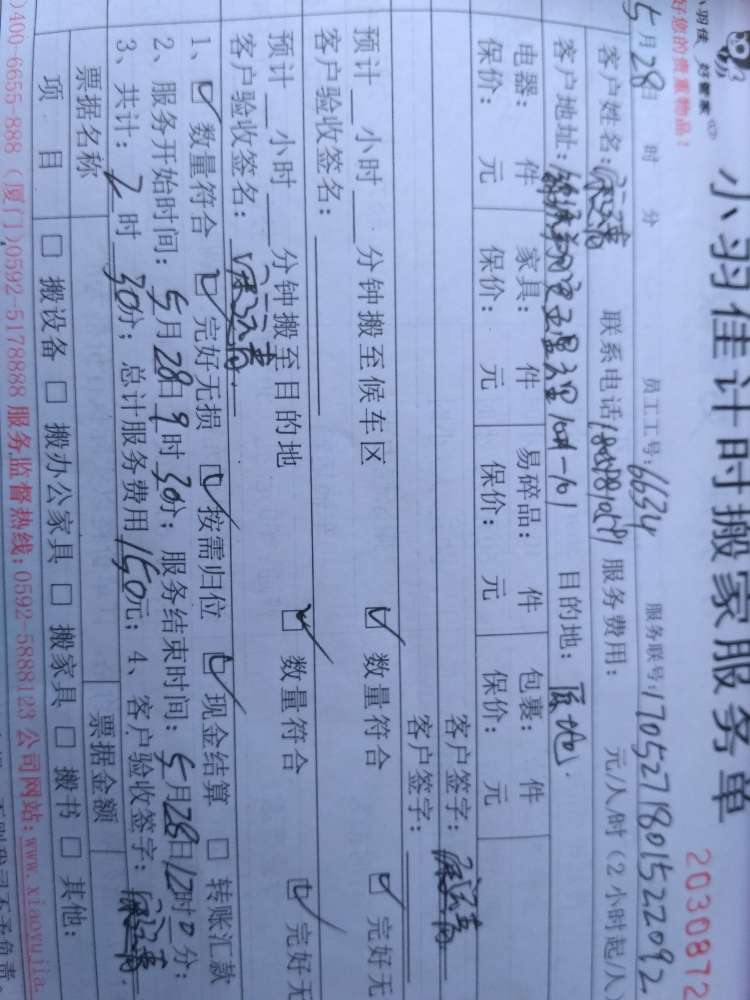 小羽佳 好管家
好您的贵重物品！
小羽佳计时搬家服务单
2030872
5月28日 时 分 员工工号：6634 服务联号：170527180152209２
客户姓名： 联系电话 服务费用： 元/人/时（2小时起/人
客户地址： 目的地：原地.
电器： 件 家具： 件 易碎品： 件 包裹： 件
保价： 元 保价： 元 保价： 元 保价： 元
客户签字：
客户签字：
预计 小时 分钟搬至候车区 ☑ 数量符合 ☑ 完好无
客户验收签名：
预计 小时 分钟搬至目的地 ☑ 数量符合 ☑ 完好无
客户验收签名：
1、☑ 数量符合 ☑ 完好无损 ☑ 按需归位 ☑ 现金结算 □ 转账汇款
2、服务开始时间：5月28日9时30分；服务结束时间：5月28日12时0分；
3、共计：2时30分；总计服务费用150元；4、客户验收签字：
票据名称 票据金额
项 目 □ 搬设备 □ 搬办公家具 □ 搬家具 □ 搬书 □ 其他：
)400-6655-888（厦门)0592-5178888 服务监督热线：0592-5888123 公司网站：www.xiaoyujia.